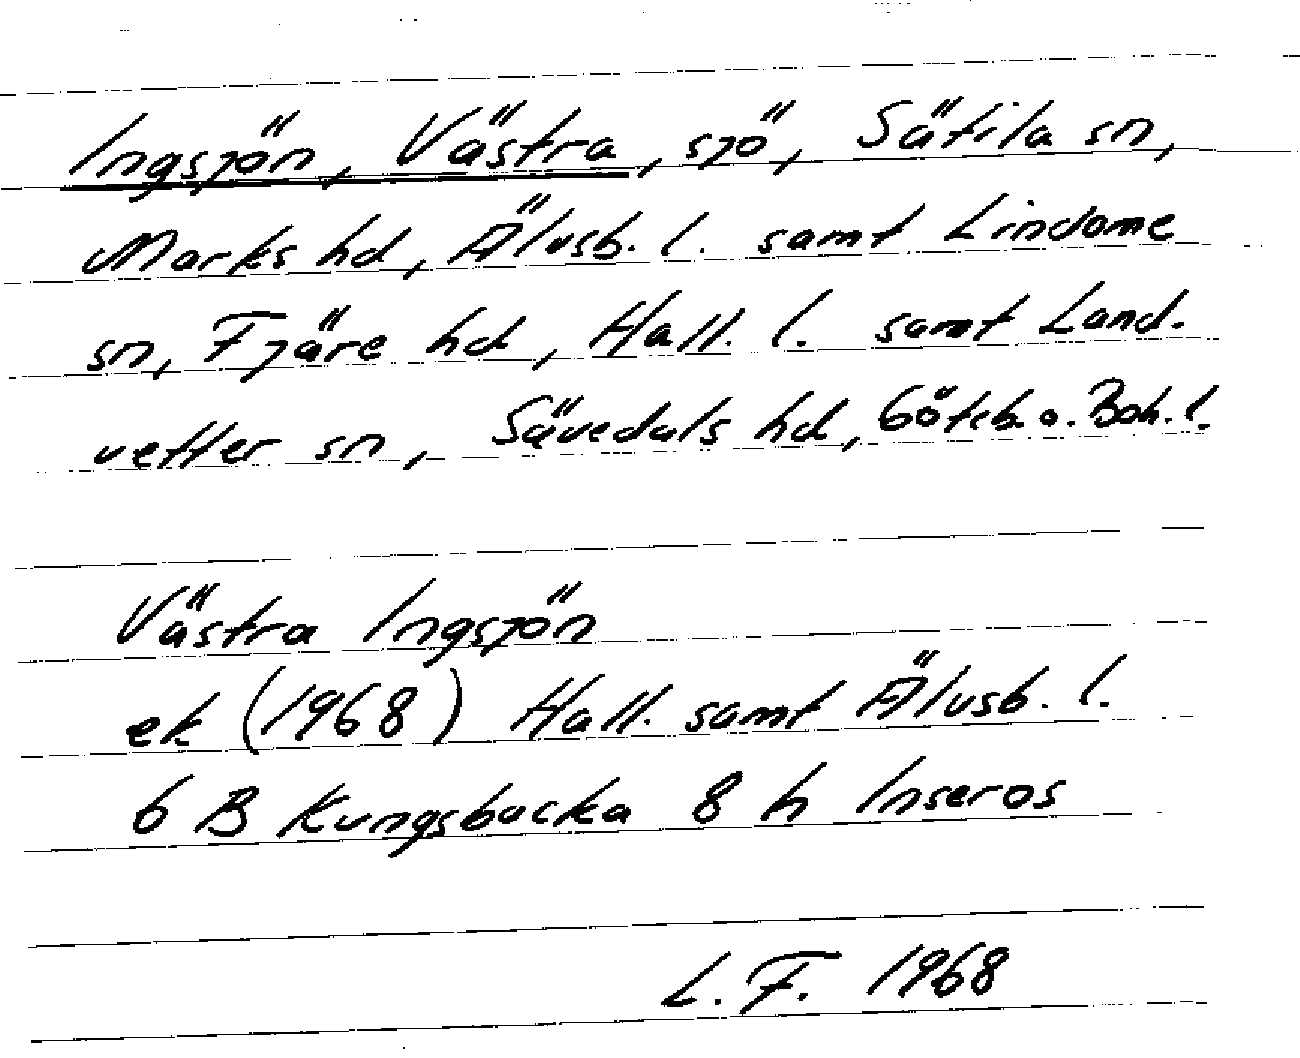 Ingsjön, Västra, sjö, Sätila sn,
Marks hd, Älvsb. l. samt Lindome
sn, Fjäre hd, Hall. l. samt Land.
vetter sn, Sävedals hd, Göteb. o. Boh. l.
Västra Ingsjön
ek (1968) Hall. samt Älvsb. l.
6 B Kungsbacka 8 h Inseros
L. F. 1968